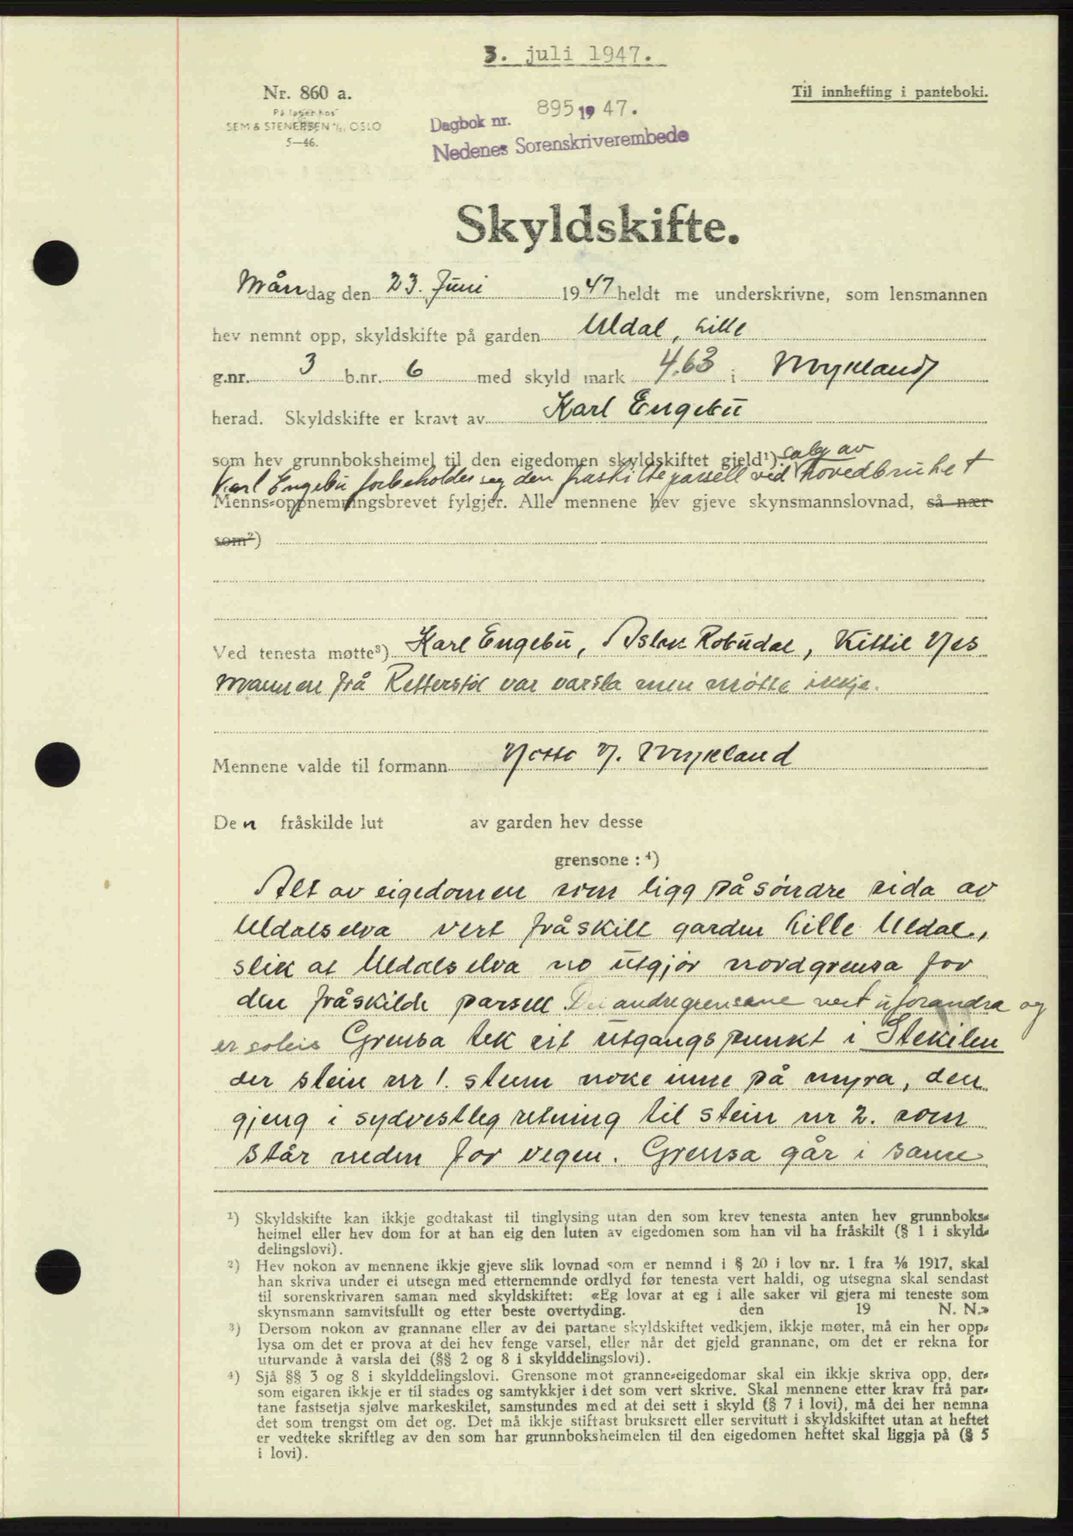 3. juli 1947.
Nr. 860 a.
Til innhefting i panteboki.
På lager hos
SEM & STENERSEN A/S, OSLO
5—46.
Dagbok nr. 895 19 47.
Nedenes Sorenskriverembede
Skyldskifte.
Måndag den 23. Juni 1947 heldt me underskrivne, som lensmannen
hev nemnt opp, skyldskifte på garden Uldal, Lille
g.nr. 3 b.nr. 6 med skyld mark 4.63 i Mykland
herad. Skyldskifte er kravt av Karl Engebu
som hev grunnboksheimel til den eigedomen skyldskiftet gjeld¹)
salg av
Karl Engebu forbeholder seg den fraskilte parsell ved hovedbruket
Menns-oppnemningsbrevet fylgjer. Alle mennene hev gjeve skynsmannslovnad, så nær
som²)
Ved tenesta møtte³) Karl Engebu, Aslak Robudal, Kittil Nes
Mannen frå Retterstøl var varsla men møtte ikkje.
Mennene valde til formann N. Mykland
Den fråskilde lut av garden hev desse
grensone : ⁴)
Alt av eigedomen som ligg på söndre sida av
Uldalselva vert fråskilt garden Lille Uldal,
slik at Uldalselva no utgjör nordgrensa for
den fråskilde parsell Dei andre grensene vert uforandra og
er soleis Grensa tek eit utgangspunkt i Stekilen
der stein nr 1. stend noke inne på myra, den
gjeng i sydvestleg retning til stein nr 2. som
står neden for vegen. Grensa går i same
¹) Skyldskifte kan ikkje godtakast til tinglysing utan den som krev tenesta anten hev grunnboks-
heimel eller hev dom for at han eig den luten av eigedomen som han vil ha fråskilt (§ 1 i skyld-
delingslovi).
²) Hev nokon av mennene ikkje gjeve slik lovnad som er nemnd i § 20 i lov nr. 1 fra ⅙ 1917, skal
han skriva under ei utsegn med etternemnde ordlyd før tenesta vert haldi, og utsegna skal sendast
til sorenskrivaren saman med skyldskiftet: «Eg lovar at eg i alle saker vil gjera mi teneste som
skynsmann samvitsfullt og etter beste overtyding. den 19 N. N.»
³) Dersom nokon av grannane eller av dei partane skyldskiftet vedkjem, ikkje møter, må ein her opp-
lysa om det er prova at dei hev fenge varsel, eller når det gjeld grannane, om det er rekna for
uturvande å varsla dei (§§ 2 og 8 i skylddelingslovi).
⁴) Sjå §§ 3 og 8 i skylddelingslovi. Grensone mot granne-eigedomar skal ein ikkje skriva opp, der-
som eigaren ikkje er til stades og samtykkjer i det som vert skrive. Skal mennene etter krav frå par-
tane fastsetja sjølve markeskilet, samstundes med at dei sett i skyld (§ 7 i lovi), må dei her nemna
det som trengst om det og. Det må ikkje stiftast bruksrett eller servitutt i skyldskiftet utan at heftet
er vedteke skriftleg av den som har grunnboksheimelen til den eigedomen heftet skal liggja på (§ 5
i lovi).